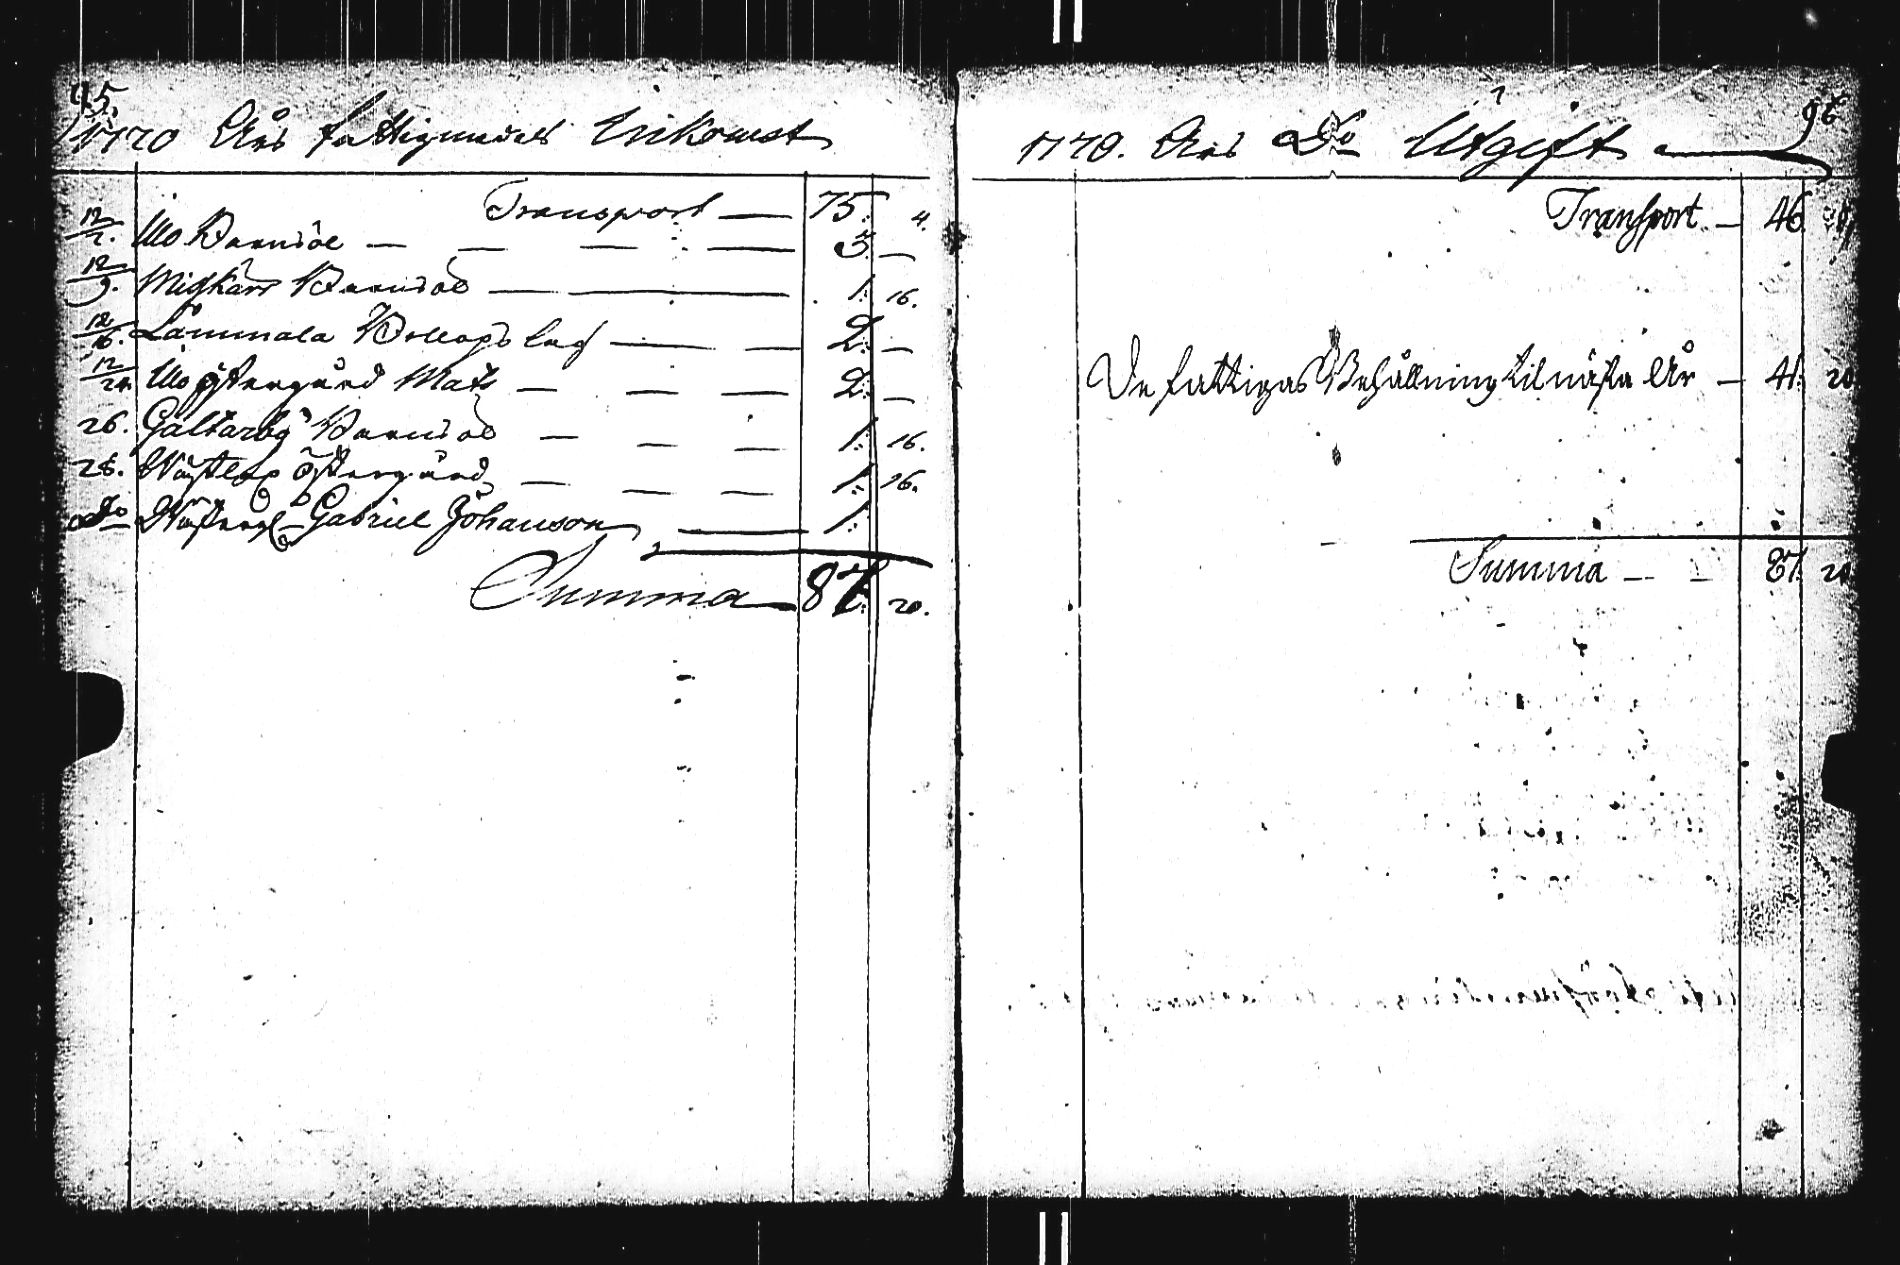 95.
1770 Års fattigmedels Inkomst
Transport — 75: 4.
12/2. Mo Barndöl — — — — 3. —
12/9. Misskärr Barndöl — — 1: 16.
12/16. Lammala Bollopslag — — 2: —
12/24. Mo östergård Mats — — — 2: —
26. Galtarby Barndöl — — — 1: 16.
28. Wästlax östergård — — — 1: 16.
Do Gabriel Johanson — 1:
Summa 87: 20.
96
1770. Års Do Utgift
Transport — 46
De fattigas Behållning til nästa År — 41: 20
Summa — — 87: 20